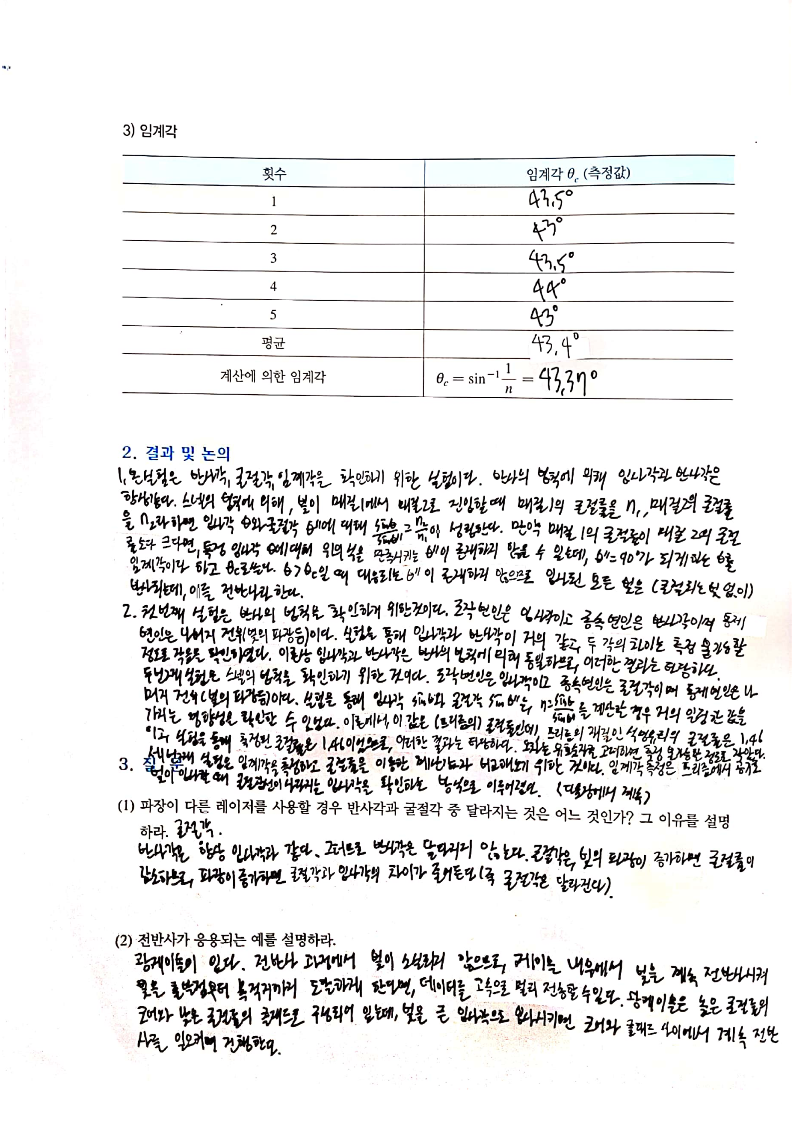 3) 임계각
횟수 임계각 θc (측정값)
1 43.5°
2 43°
3 43.5°
4 44°
5 43°
평균 43.4°
계산에 의한 임계각 θc = sin⁻¹ 1/n = 43.37°
2. 결과 및 논의
1. 본 실험은 반사각, 굴절각, 임계각을 확인하기 위한 실험이다. 반사의 법칙에 의해 입사각과 반사각은
항상 같다. 스넬의 법칙에 의해, 빛이 매질1에서 매질2로 진입할 때 매질1의 굴절률을 n₁, 매질2의 굴절률
을 n₂라 하면 입사각 θ와 굴절각 θ''에 대해 sinθ/sinθ'' = n₂/n₁이 성립한다. 만약 매질1의 굴절률이 매질2의 굴절
률보다 크다면, 특정 입사각 θ에 대해 위의 식을 만족시키는 θ''이 존재하지 않을 수 있는데, θ''=90°가 되게 하는 θ를
임계각이라 하고 θc로 쓴다. θ>θc일 때 대응되는 θ''이 존재하지 않으므로 입사된 모든 빛은 (굴절되는 빛 없이)
반사되는데, 이를 전반사라 한다.
2. 첫번째 실험은 반사의 법칙을 확인하기 위한 것이다. 조작변인은 입사각이고 종속변인은 반사각이며 통제
변인은 나머지 전부(빛의 파장 등)이다. 실험을 통해 입사각과 반사각이 거의 같고, 두 각의 차이는 측정
정도로 작음을 확인하였다. 이론상 입사각과 반사각은 반사의 법칙에 의해 동일하므로, 이러한 결과는 타당하다.
두번째 실험은 스넬의 법칙을 확인하기 위한 것이다. 조작변인은 입사각이고 종속변인은 굴절각이며 통제변인은 나
머지 전부(빛의 파장 등)이다. 실험을 통해 입사각 sinθ와 굴절각 sinθ''을, n=sinθ/sinθ''를 계산한 경우 거의 일정한 값을
가지는 경향성을 확인할 수 있었다. 이론에서, 이 값은 (프리즘의) 굴절률인데, 프리즘의 재질인 석영유리의 굴절률은 1.46
이고 실험을 통해 측정된 굴절률은 1.46이었으므로, 이러한 결과는 타당하다. 오차는 유효숫자를 고려하면 측정 불가능한 정도로 작았다.
세번째 실험은 임계각을 측정하고 굴절률을 이용한 계산값과 비교해보기 위한 것이다. 임계각 측정은 프리즘에서 공기로
3. 질 문
빛이 입사할 때 굴절광선이 사라지는 입사각을 확인하는 방식으로 이루어졌다. (뒷장에서 계속)
(1) 파장이 다른 레이저를 사용할 경우 반사각과 굴절각 중 달라지는 것은 어느 것인가? 그 이유를 설명
하라. 굴절각.
반사각은 항상 입사각과 같다. 그러므로 반사각은 달라지지 않는다. 굴절각은, 빛의 파장이 증가하면 굴절률이
감소하므로, 파장이 증가하면 굴절각과 입사각의 차이가 줄어든다 (즉 굴절각은 달라진다).
(2) 전반사가 응용되는 예를 설명하라.
광케이블이 있다. 전반사 과정에서 빛이 소실되지 않으므로, 케이블 내부에서 빛을 계속 전반사시켜
빛을 출발점부터 목적지까지 도달하게 한다면, 데이터를 고속으로 멀리 전송할 수 있다. 광케이블은 높은 굴절률의
코어와 낮은 굴절률의 클래드로 구성되어 있는데, 빛을 큰 입사각으로 입사시키면 코어와 클래드 사이에서 계속 전반
사를 일으키며 진행한다.